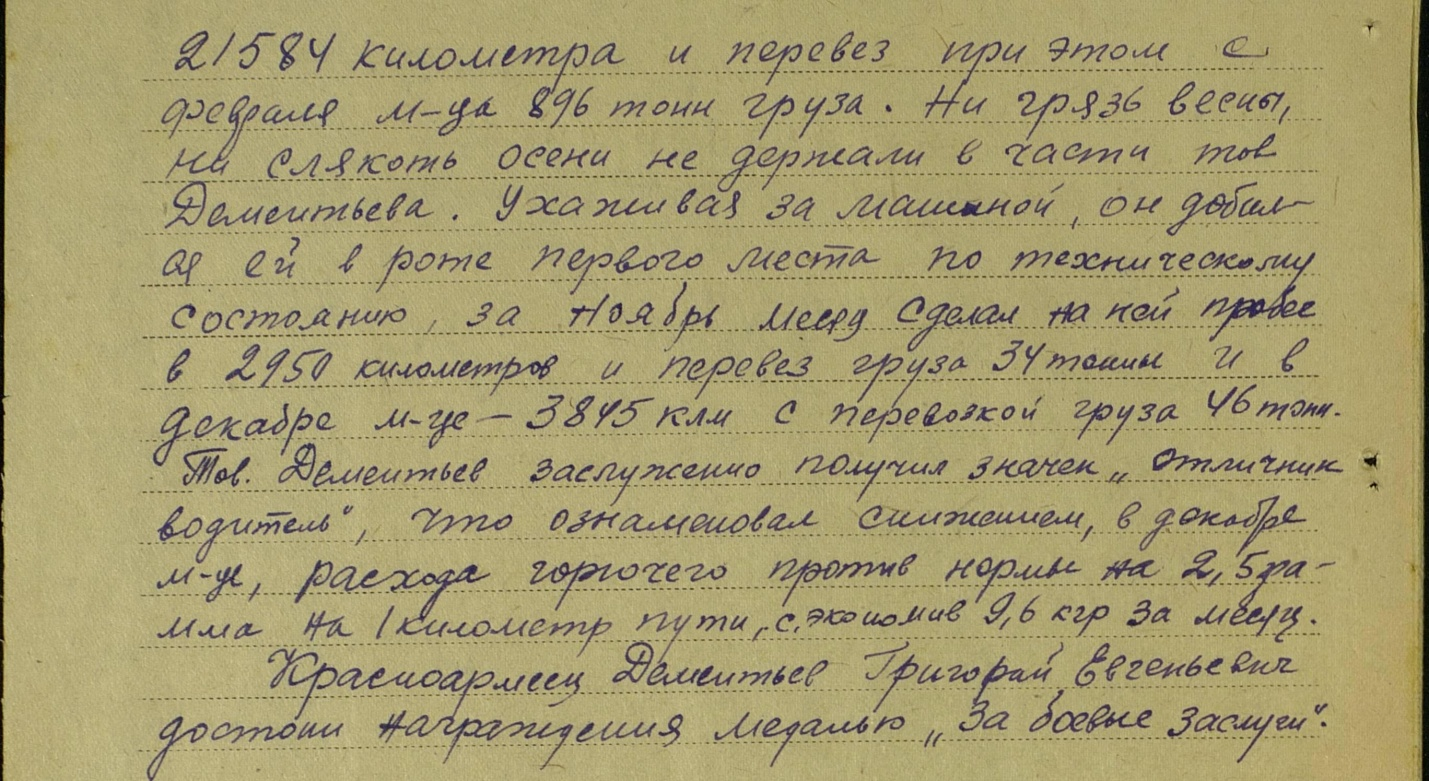 21584 километра и перевез при этом с
февраля м-ца 896 тонн груза. Ни грязь весны,
ни слякоть осени не держали в части тов
Дементьева. Ухаживая за машиной, он добил-
ся ей в роте первого места по техническому
состоянию, за ноябрь месяц сделал на ней пробег
в 2950 километров и перевез груза 34 тонны и в
декабре м-це – 3845 клм с перевозкой груза 46 тонн.
Тов. Дементьев заслуженно получил значек „отличник
водитель", что ознаменовал снижением, в декабре
м-це, расхода горючего против нормы на 2,5 гра-
мма на 1 километр пути, с.экономив 9,6 кгр за месяц.
Красноармеец Дементьев Григорий Евгеньевич
достоин награждения медалью „За боевые заслуги".